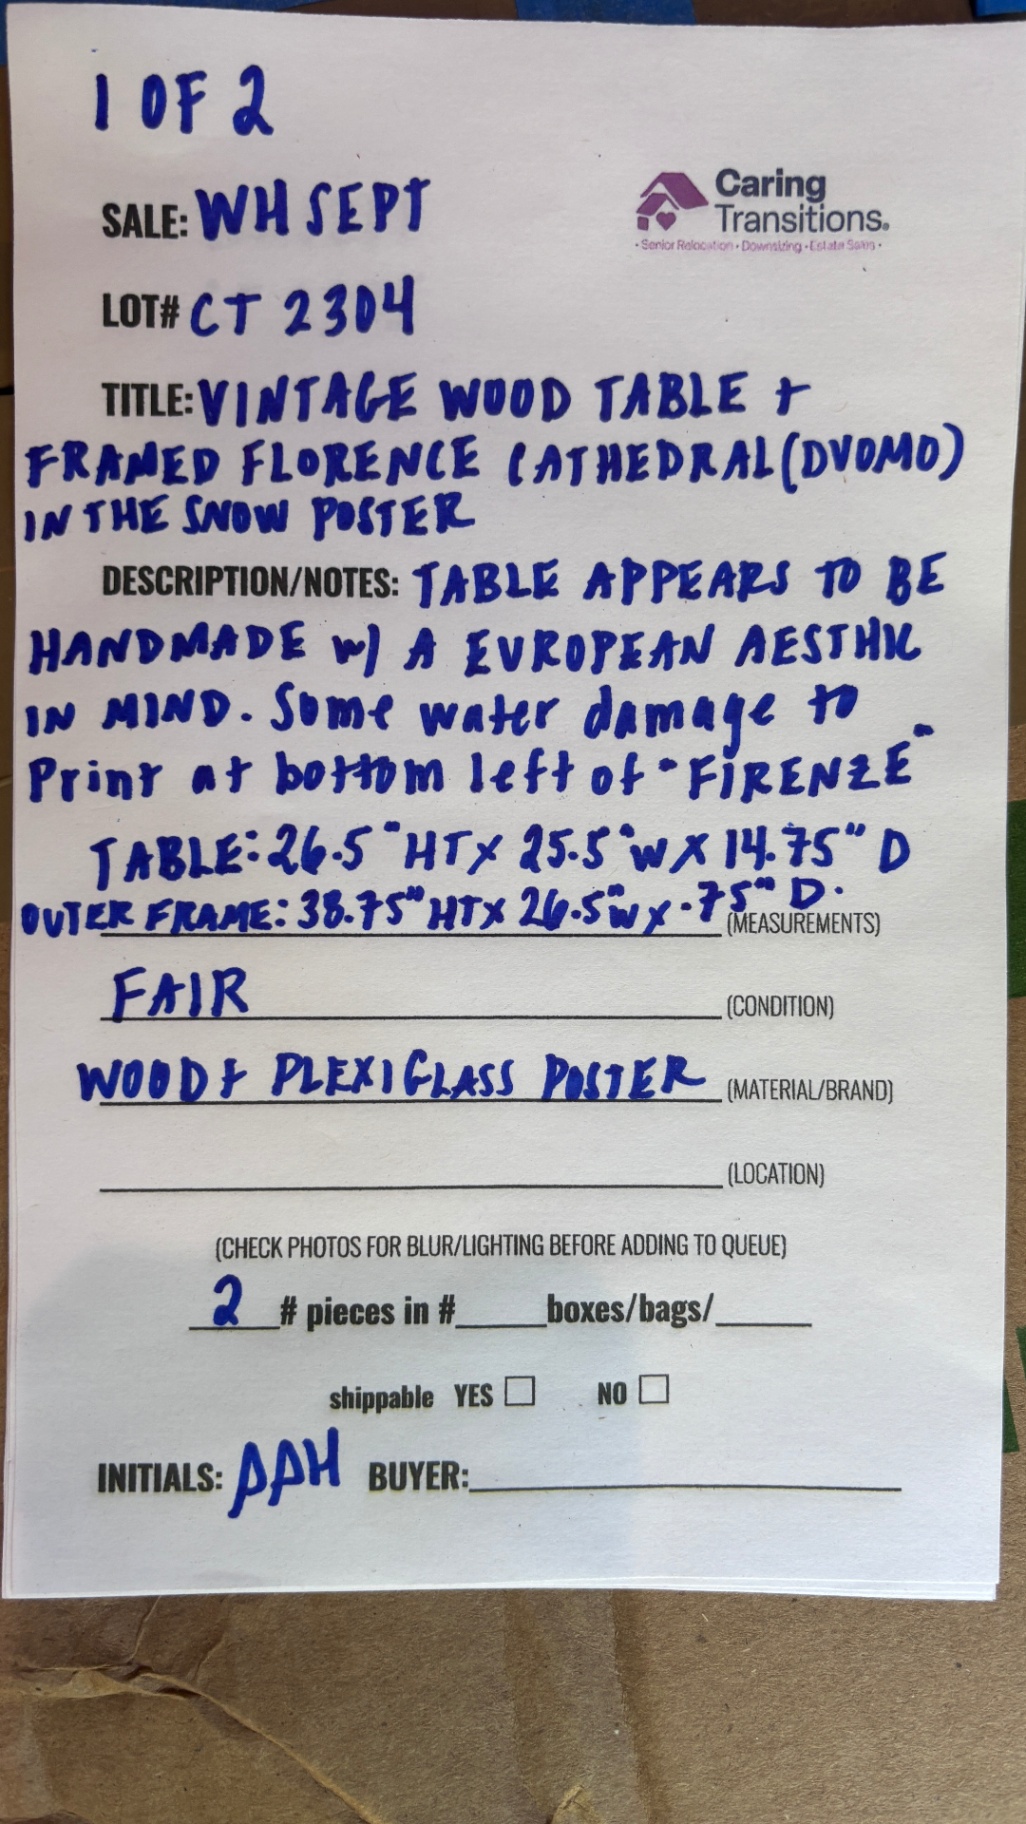 1 OF 2
SALE: WH SEPT
Caring
Transitions.
• Senior Relocation • Downsizing • Estate Sales •
LOT# CT 2304
TITLE: VINTAGE WOOD TABLE +
FRAMED FLORENCE CATHEDRAL (DUOMO)
IN THE SNOW POSTER
DESCRIPTION/NOTES: TABLE APPEARS TO BE
HANDMADE w/ A EUROPEAN AESTHIC
IN MIND. Some water damage to
Print at bottom left of "FIRENZE"
TABLE: 26.5" HT X 25.5" W X 14.75" D
OUTER FRAME: 38.75" HT X 26.5" W X .75" D.
(MEASUREMENTS)
FAIR (CONDITION)
WOOD + PLEXIGLASS POSTER (MATERIAL/BRAND)
(LOCATION)
(CHECK PHOTOS FOR BLUR/LIGHTING BEFORE ADDING TO QUEUE)
2 # pieces in # boxes/bags/
shippable YES ☐ NO ☐
INITIALS: AAH BUYER: